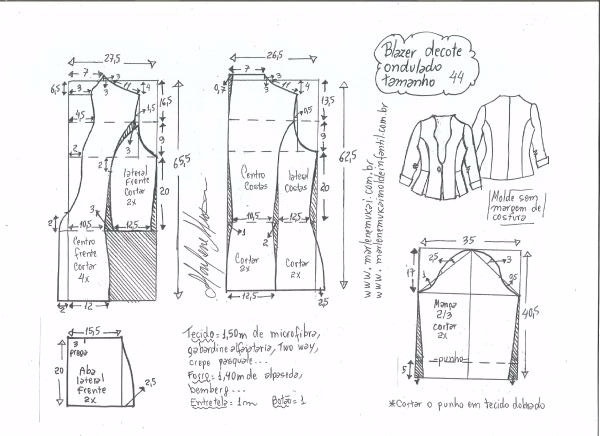 Blazer decote
ondulado
tamanho 44
27,5
7
3
11
4
6,5
3
4,5
16,5
4,5
9
3
2
2
20
65,5
lateral
Frente
cortar
2x
3
2
10,5
12,5
Centro
frente
cortar
4x
2
12
26,5
7
0,7
3
11
4
0,5
13,5
9
20
62,5
Centro
Costas
lateral
Costas
10,5
12,5
1
2
Cortar
2x
Cortar
2x
12,5
2,5
www.marlenemukai.com.br
www.marlenemukaimoldeinfantil.com.br
Molde sem
margem de
costura
35
17
25
3
1
Manga
2/3
cortar
2x
40,5
punho
5
15,5
3
prega
20
Aba
lateral
frente
2x
2,5
Tecido = 1,50m de microfibra,
gabardine alfaiataria, Two way,
crepe pasquale...
Forro = 1,40m de alpaseda,
bemberg...
Entretela = 1m Botão = 1
*Cortar o punho em tecido dobrado